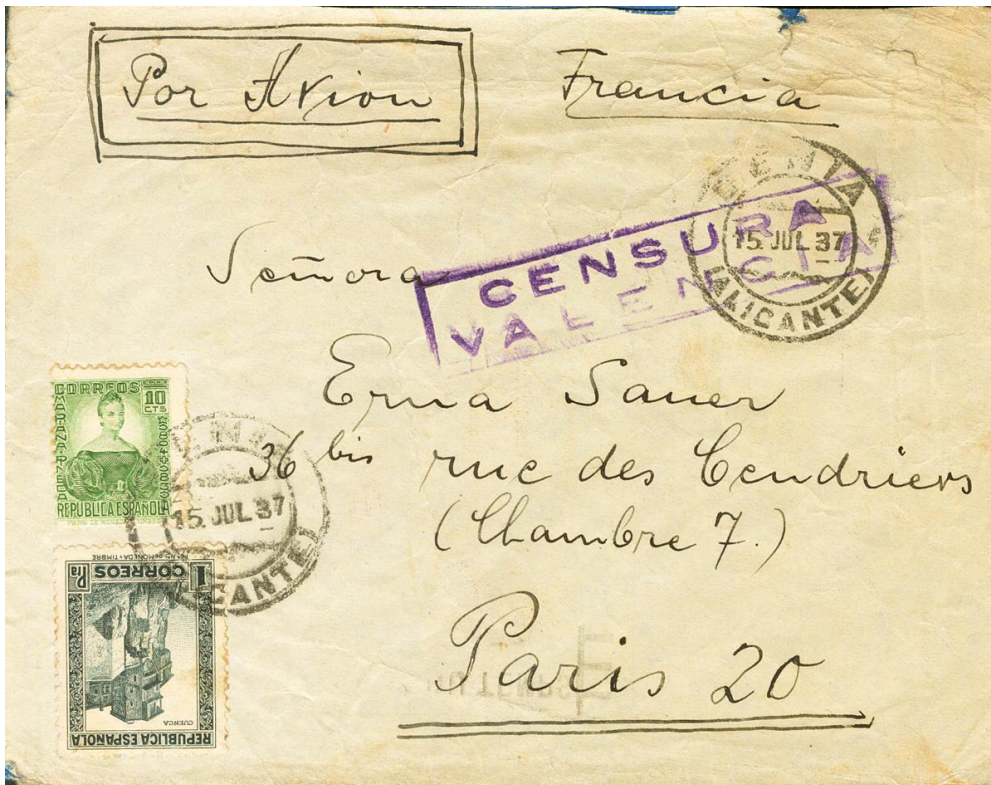 Por Avion
Francia
DENIA
15 JUL 37
(ALICANTE)
CENSURA
VALENCIA
Señora
Erna Sauer
36 bis rue des Cendriers
(Chambre 7.)
Paris 20
CORREOS
10
CTS
MARIANA PINEDA
REPUBLICA ESPAÑOLA
15 JUL 37
ALICANTE)
1 CORREOS Pta
CUENCA
REPUBLICA ESPAÑOLA